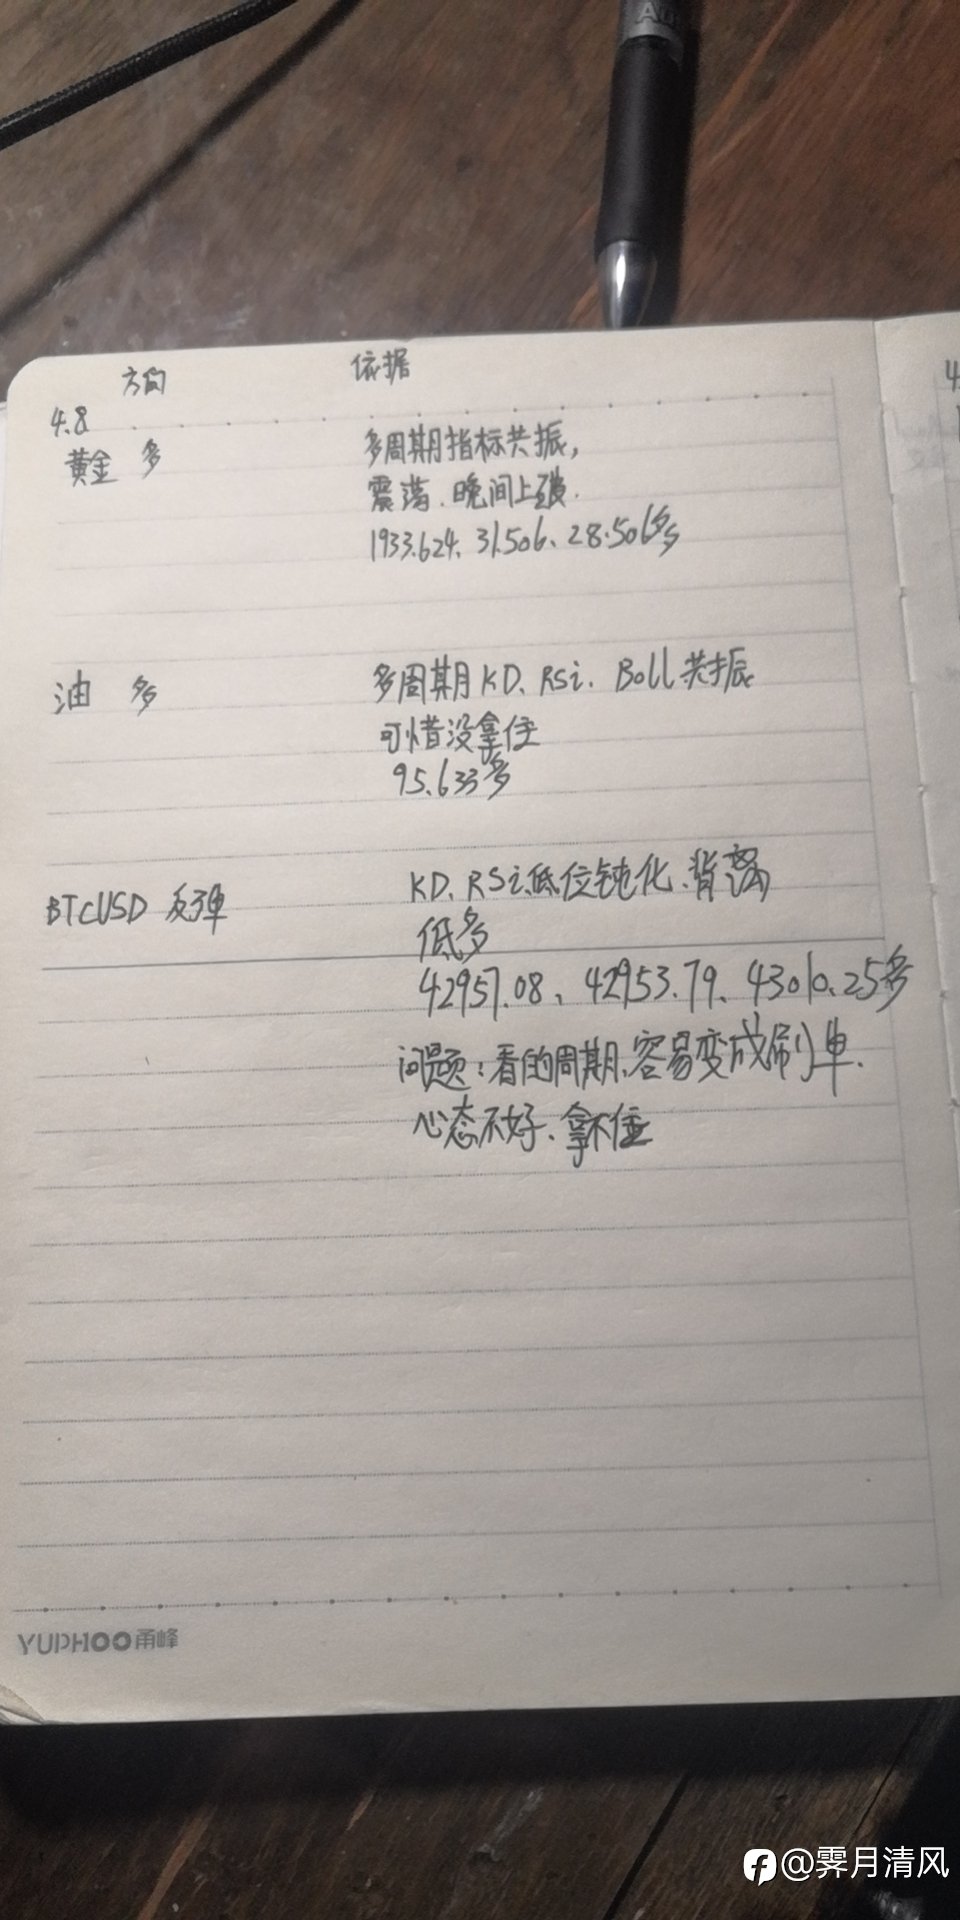 方向 依据
4.8
黄金 多 多周期指标共振,
震荡、晚间上破.
1933.624、31.506、28.506多
油 多 多周期KD、RSi、Boll共振
可惜没拿住
95.633多
BTCUSD 反弹 KD、RSi低位钝化、背离
低多
42957.08、42953.79、43010.25多
问题:看的周期、容易变成刷单.
心态不好、拿不住
YUPHOO甬峰
@霁月清风